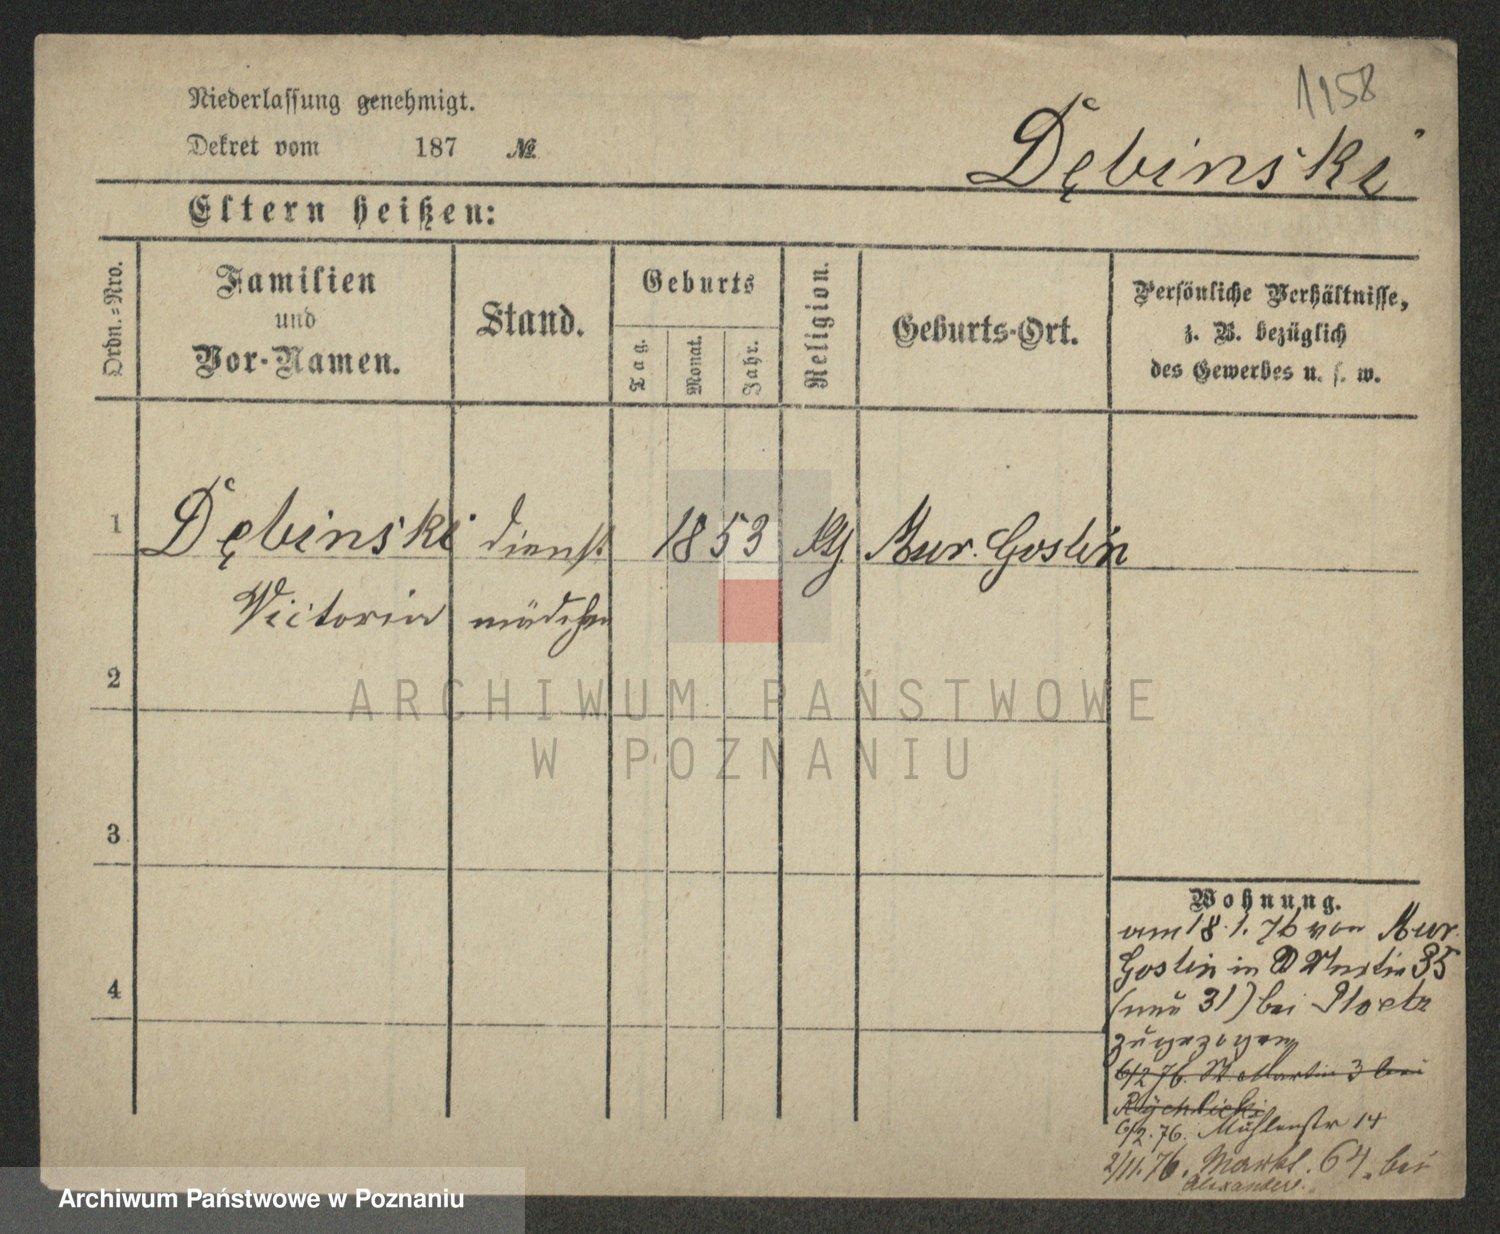 1158
Niederlassung genehmigt.
Dekret vom 187 №
Dębinski
Eltern heißen:
Ordn.-Nro.
Familien
und
Vor-Namen.
Stand.
Geburts
Tag.
Monat.
Jahr.
Religion.
Geburts-Ort.
Persönliche Verhältnisse,
z. B. bezüglich
des Gewerbes u. s. w.
1 Dębinski dienst 1853 Mur. Goslin
Victoria mädchen
2
3
4
ARCHIWUM PAŃSTWOWE
W POZNANIU
Wohnung.
am 18.1.76 von Mur.
Goslin in St Martin 35
(neu 31) bei Ploetz
zugezogen
6/2 76. St. Martin 3 bei
Rychlicki
6/2.76. Mühlenstr 14
2/11.76. Markt. 64. bei
Alexander.
Archiwum Państwowe w Poznaniu